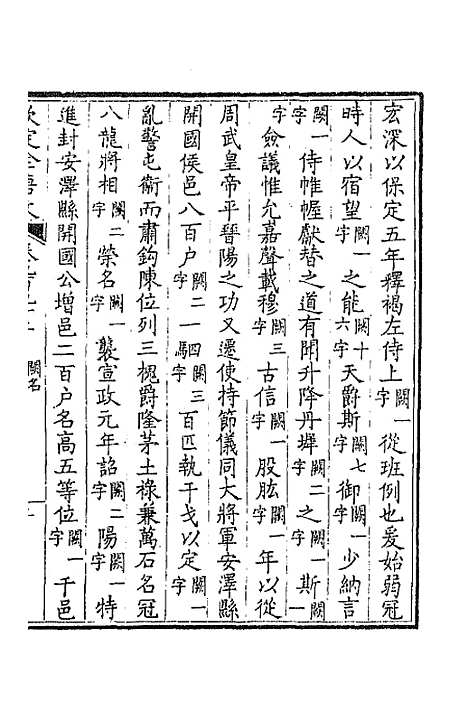 宏深以保定五年釋褐左侍上闕一字從班例也爰始弱冠
時人以宿望闕一字之能闕十六字天爵斯闕七字御闕一字少納言
闕一字侍帷幄獻替之道有聞升降丹墀闕二字之闕一字斯闕一
字僉議惟允嘉聲載穆闕三字古信闕一字股肱闕一字年以從
周武皇帝平晉陽之功又遷使持節儀同大將軍安澤縣
開國侯邑八百户闕二字一闕四字馬闕三字百匹執干戈以定闕一字
亂警屯衛而肅鈎陳位列三槐爵隆茅土祿兼萬石名冠
八龍將相闕二字榮名闕一字襲宣政元年詔闕二字陽闕一字特
進封安澤縣開國公增邑二百户名高五等位闕一字千邑
欽定全唐文 闕名